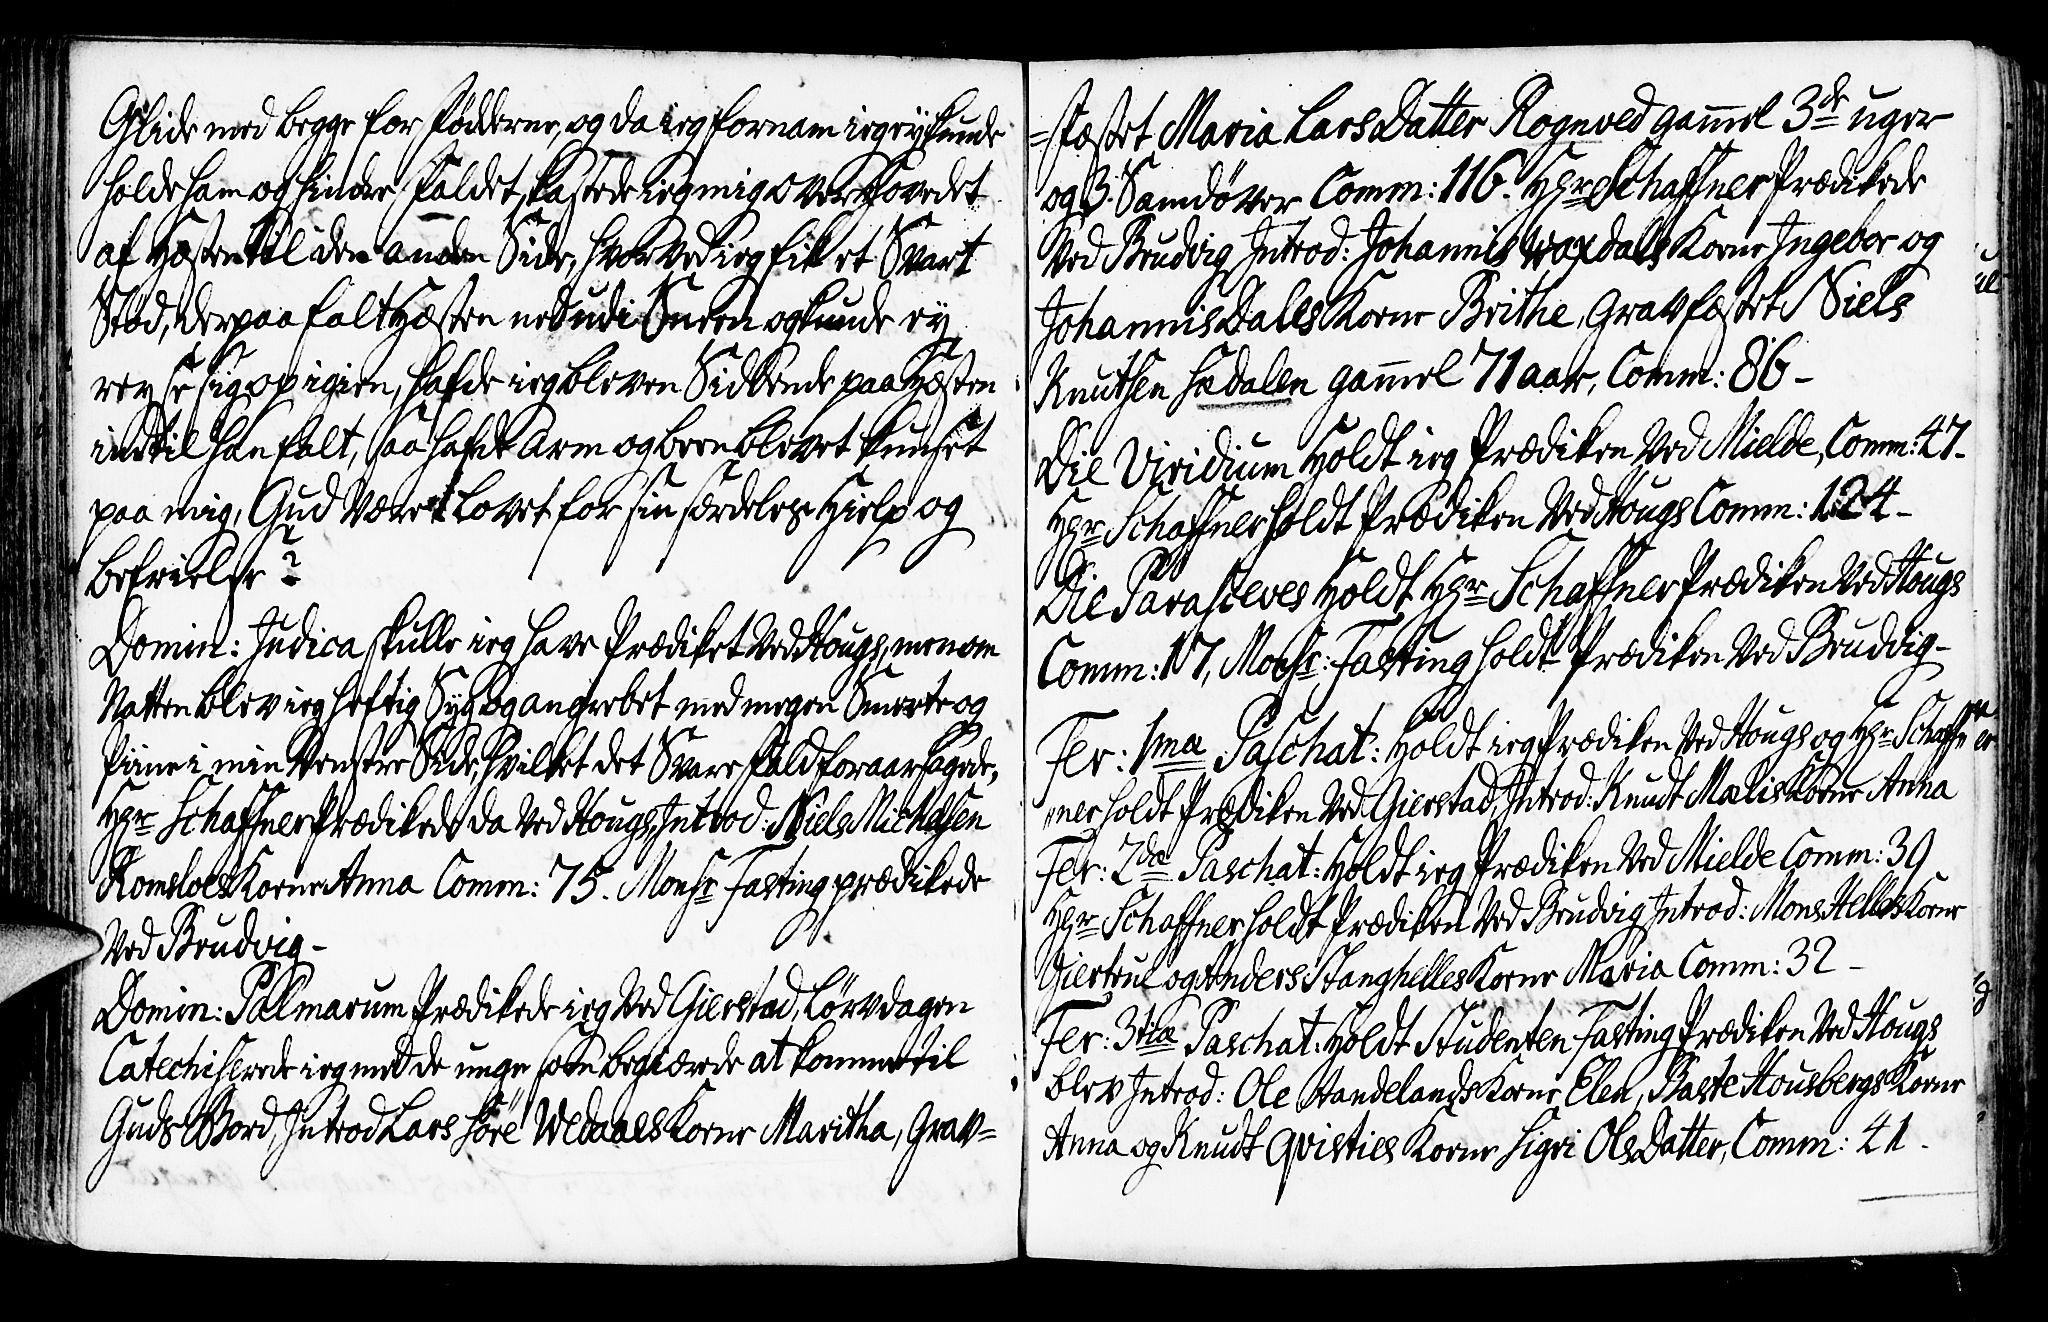 Glide med begge for fødderne, og da ieg fornam ieg ey kunde
holde ham og hindre faldet, kastede ieg mig over Hovedet
af Hæsten til den anden Side, hvorved ieg fik et Svart
Stød, derpaa falt Hæsten ned udi Sneen og kunde ey
reyse sig op igien, hafde ieg bleven Siddende paa Hæsten
indtil han falt, saa hafde Arm og been blevet knuset
paa mig, Gud Være lovet for sin særdeles Hielp og
befrielse
Domin: Judica skulle ieg have Prædiket Ved Hougs, men om
Natten blev ieg heftig Syg og angrebet med megen Smerte og
Piine i min Venstre Side, hvilket det Svare fald foraarsagede,
Hr Schaffner Prædikede da Ved Hougs, Introd: Niels Michelsen
Romsloes Kone Anna Comm: 75. Monsr Fasting prædikede
Ved Brudvig –
Domin: Palmarum Prædikede ieg Ved Gierstad, Løverdagen
Catechiserede ieg med de unge som begiærede at komme til
Guds Bord, Introd Lars Søre Wedaaes Kone Maritha, Grav=
=fæstet Maria LarsDatter Rogneved gamel 3de uger
og 3. Samdøver Comm: 116. Hr Schaffner Prædikede
Ved Brudvig Introd: Johannis Waxdals Kone Ingebor og
Johannis Dales Kone Brithe, Gravfæstet Niels
Knutsen Hædalen gamel 71 aar, Comm: 86 –
Die Viridium Holdt ieg Prædiken Ved Mielde, Comm: 47 –
Hr Schaffner holdt Prædiken Ved Hougs Comm: 124 –
Die Parasceves Holdt Hr Schaffner Prædiken Ved Hougs
Comm: 17, Monsr: Fasting holdt Prædiken Ved Brudvig –
Fer: 1ma Paschat: Holdt ieg Prædiken Ved Hougs og Hr Schaffner
ner holdt Prædiken Ved Gierstad, Introd: Knudt Mælis Kone Anna
Fer: 2da Paschat: Holdt ieg Prædiken Ved Mielde Comm: 39
Hr Schaffner holdt Prædiken Ved Brudvig Introd: Mons Helles Kone
Giertrue og Anders Stanghelles Kone Maria Comm: 32 –
Fer: 3tia Paschat: Holdt Studenten Fasting Prædiken Ved Hougs
blev Introd: Ole Handelands Kone Elen, Baste Housbergs Kone
Anna og Knudt Qvisties Kone Sigri OlsDatter, Comm: 41 –